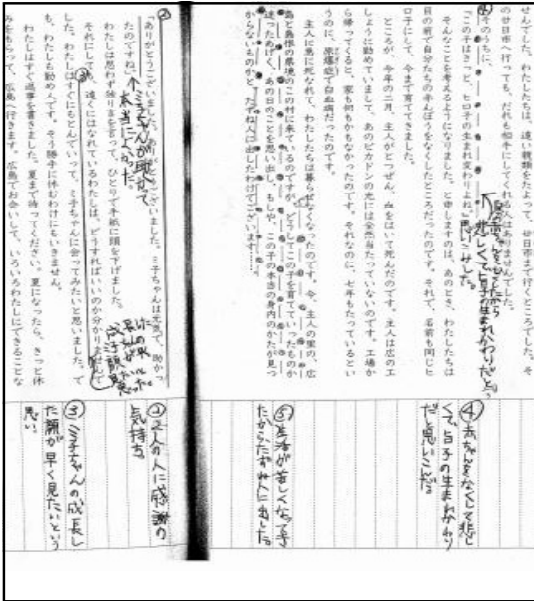 せんでした。わたしたちは、遠い親類をたよって、廿日市まで行くところでした。そ
の廿日市へ行っても、だれも相手にしてくれる人はありませんでした。
④そのうちに、
「この子はきっと、ヒロ子の生まれ変わりよね」
そんなことを考えるようになりました。と申しますのは、あのとき、わたしたちは
目の前で自分たちの赤んぼうをなくしたところだったのです。それで、名前も同じヒ
ロ子にして、今まで育ててきました。
ところが、今年の二月、主人がとつぜん、血をはいて死んだのです。主人は広の工
しょうに勤めていまして、あのピカドンの光には全然当たっていないのです。工場か
ら帰ってくると、家も何もかもなかったのです。それなのに、七年もたっているとい
うのに、原爆症で白血病だったのです。
主人に急に死なれて、わたしたちは暮らせなくなったのです。今、主人の里の、広
島と島根の県境のこの村に来ているのですが、どうしてこの子を育てていったものか
迷ったあげく、あの日のことを思い出し、もしや、この子の本当の身内のかたが見つ
からないものかと、たずね人に出したわけでございます……
②
「ありがとうございました。ありがとうございました。ミ子ちゃんは元気で、助かっ
たのですね」
ミ子ちゃんが助かって、
本当によかった。
わたしは思わず独り言を言って、ひとりで手紙に頭を下げました。
それにしても、遠くにはなれているわたしは、どうすればいいのか分かりません
した。わたしはすぐにもとんでいって、ミ子ちゃんに会ってみたいと思いました。で
も、わたしも勤め人です。そう勝手に休むわけにもいきません。
わたしはすぐ返事を書きました。夏まで待ってください。夏になったら、きっと休
みをもらって、広島へ行きます。広島でお会いして、いろいろわたしにできることな
④赤ちゃんをなくして悲し
くて、ヒロ子の生まれかわり
だと思いこんだ。
⑤生活が苦しくなって
たから、たずね人に出した。
②2人の人に感謝の
気持ち
③ミ子ちゃんの成長し
た顔が早く見たいという
思い。